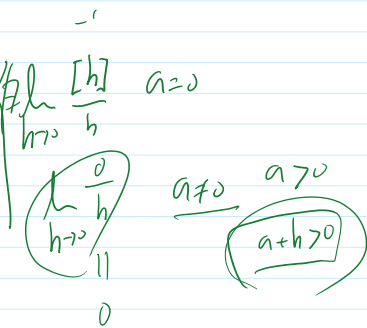 -1
∄ lim_{h→0} [h]/h   a=0
lim_{h→0} 0/h   a≠0   a>0
a+h>0
||
0